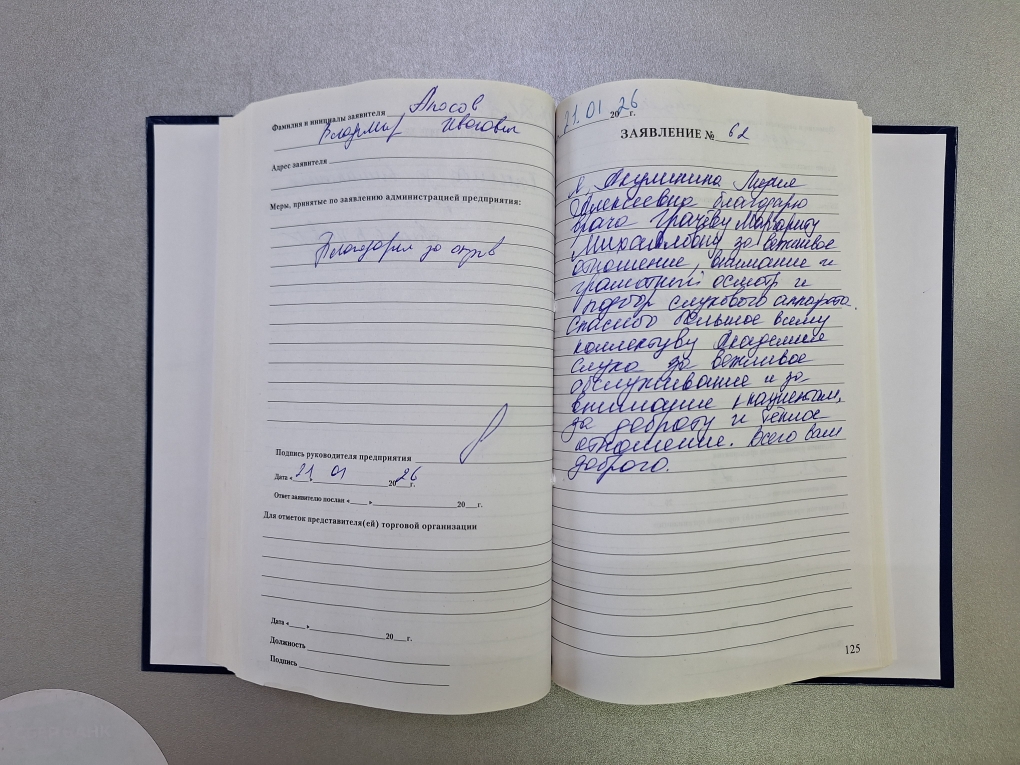 Фамилия и инициалы заявителя Аносов
Владимир Иванович
Адрес заявителя
Меры, принятые по заявлению администрацией предприятия:
Благодарим за отзыв
Подпись руководителя предприятия
Дата «21» 01 2026 г.
Ответ заявителю послан «___» 20__г.
Для отметок представителя(ей) торговой организации
Дата «___» 20__г.
Должность
Подпись
21. 01 2026 г.
ЗАЯВЛЕНИЕ № 62
Я, Акулинина Мария
Алексеевна благодарю
врача Грачёву Маргариту
Михайловну за вежливое
отношение, внимание и
грамотный осмотр и
подбор слухового аппарата.
Спасибо большое всему
коллективу Академии
слуха за вежливое
обслуживание и за
внимание к пациентам,
за доброту и тёплое
отношение. Всего вам
доброго.
125